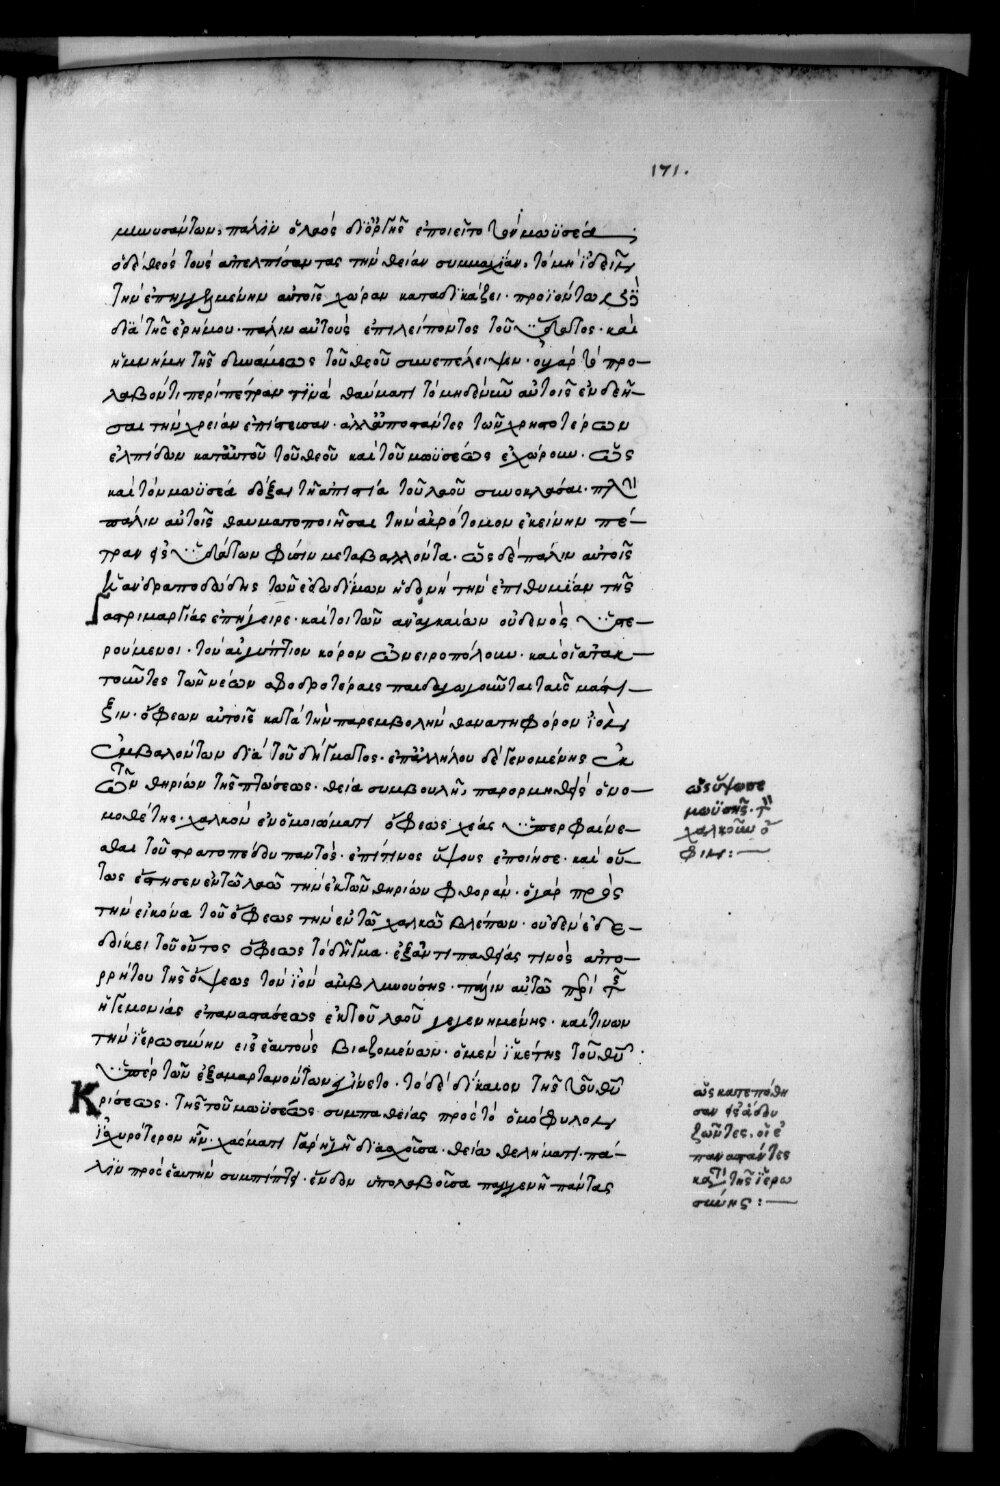 171.
μηνυσάντων, πάλιν ὁ λαὸς δι' ὀργῆς ἐποιεῖτο τὸν μωϋσέα
ὁ δὲ θεὸς τοὺς ἀπελπίσαντας τὴν θείαν συμμαχίαν, τὸ μὴ ἰδεῖν
τὴν ἐπηγγελμένην αὐτοῖς χώραν καταδικάζει· προϊόντων δὲ
διὰ τῆς ἐρήμου· πάλιν αὐτοὺς ἐπιλείποντος τοῦ ὕδατος· καὶ
ἡ μνήμη τῆς δυνάμεως τοῦ θεοῦ συνεπέλειψεν· οὐ γὰρ τῷ προ-
λαβόντι περὶ πέτραν τινὰ θαύματι τὸ μηδὲ νῦν αὐτοῖς ἐνδεῆ-
σαι τὴν χρείαν ἐπίστευσαν· ἀλλ' ἀποστάντες τῶν χρηστοτέρων
ἐλπίδων κατ' αὐτοῦ τοῦ θεοῦ καὶ τοῦ μωϋσέως ἐχώρουν· ὡς
καὶ τὸν μωϋσέα δόξαι τῇ ἀπιστίᾳ τοῦ λαοῦ συνοκλάσαι· πλὴν
πάλιν αὐτοῖς θαυματοποιῆσαι τὴν ἀκρότομον ἐκείνην πέ-
τραν εἰς ὑδάτων φύσιν μεταβαλλόντα· ὡς δὲ πάλιν αὐτοῖς
ἡ ἀνδραποδώδης τῶν ἐδωδίμων ἡδονὴ τὴν ἐπιθυμίαν τῆς
γαστριμαργίας ἐπήγειρε· καίτοι τῶν ἀναγκαίων οὐδενὸς ὑστε-
ρούμενοι· τὸν αἰγύπτιον κόρον ὠνειροπόλουν· καὶ οἱ ἀτακ-
τοῦντες τῶν νέων σφοδροτέραις παιδαγωγοῦνται ταῖς μάστι-
ξιν· ὄφεων αὐτοῖς κατὰ τὴν παρεμβολὴν θανατηφόρον ἰὸν
ἐμβαλόντων διὰ τοῦ δήγματος· ἐπαλλήλου δὲ γενομένης ἐκ
τῶν θηρίων τῆς πτώσεως· θείᾳ συμβουλῇ, παρορμηθεὶς ὁ νο-
μοθέτης· χαλκὸν ἐν ὁμοιώματι ὄφεως χέας ὑπερφαίνε-
σθαι τοῦ στρατοπέδου παντὸς· ἐπί τινος ὕψους ἐποίησε· καὶ οὕ-
τως ἔστησεν ἐν τῷ λαῷ τὴν ἐκ τῶν θηρίων φθοράν· ὁ γὰρ πρὸς
τὴν εἰκόνα τοῦ ὄφεως τὴν ἐν τῷ χαλκῷ βλέπων· οὐδὲν ἐδε-
δοίκει τοῦ ὄντος ὄφεως τὸ δῆγμα· ἐξ ἀντιπαθείας τινὸς ἀπο-
ρρήτου τῆς ὄψεως τὸν ἰὸν ἀμβλυνούσης· πάλιν αὐτῷ περὶ τῆς
ἡγεμονίας ἐπαναστάσεως ἐκ τοῦ λαοῦ γεγενημένης· καί τινων
τὴν ἱερωσύνην εἰς ἑαυτοὺς βιαζομένων· ὁ μὲν ἱκέτης τοῦ θῦ
ὑπὲρ τῶν ἐξαμαρτανόντων γίνεται· τὸ δὲ δίκαιον τῆς τοῦ θῦ
Κρίσεως· τῆς τοῦ μωϋσέως συμπαθείας πρὸς τὸ ὁμόφυλον
ἰσχυρότερον ἦν· χάσματι γὰρ ἡ γῆ διασχοῦσα· θείῳ θελήματι· πά-
λιν πρὸς ἑαυτὴν συμπίπτει· ἔνδον ὑπολαβοῦσα παγγενῆ πάντας
ὡς ὕψωσε
μωϋσῆς· τὸν
χαλκοῦν ὄ
φιν:—
ὡς κατεπόθη
σαν εἰς ἅδου
ζῶντες· οἱ ἐ
παναστάντες
κατὰ τῆς ἱερω
σύνης:—